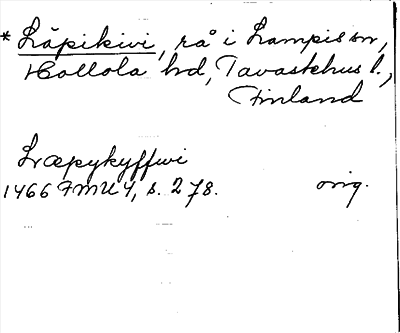 * Läpikivi, rå i Lampis sn,
Hollola hd, Tavastehus l.,
Finland
Læpykyffwi
1466 FMU 4, s. 278. orig.